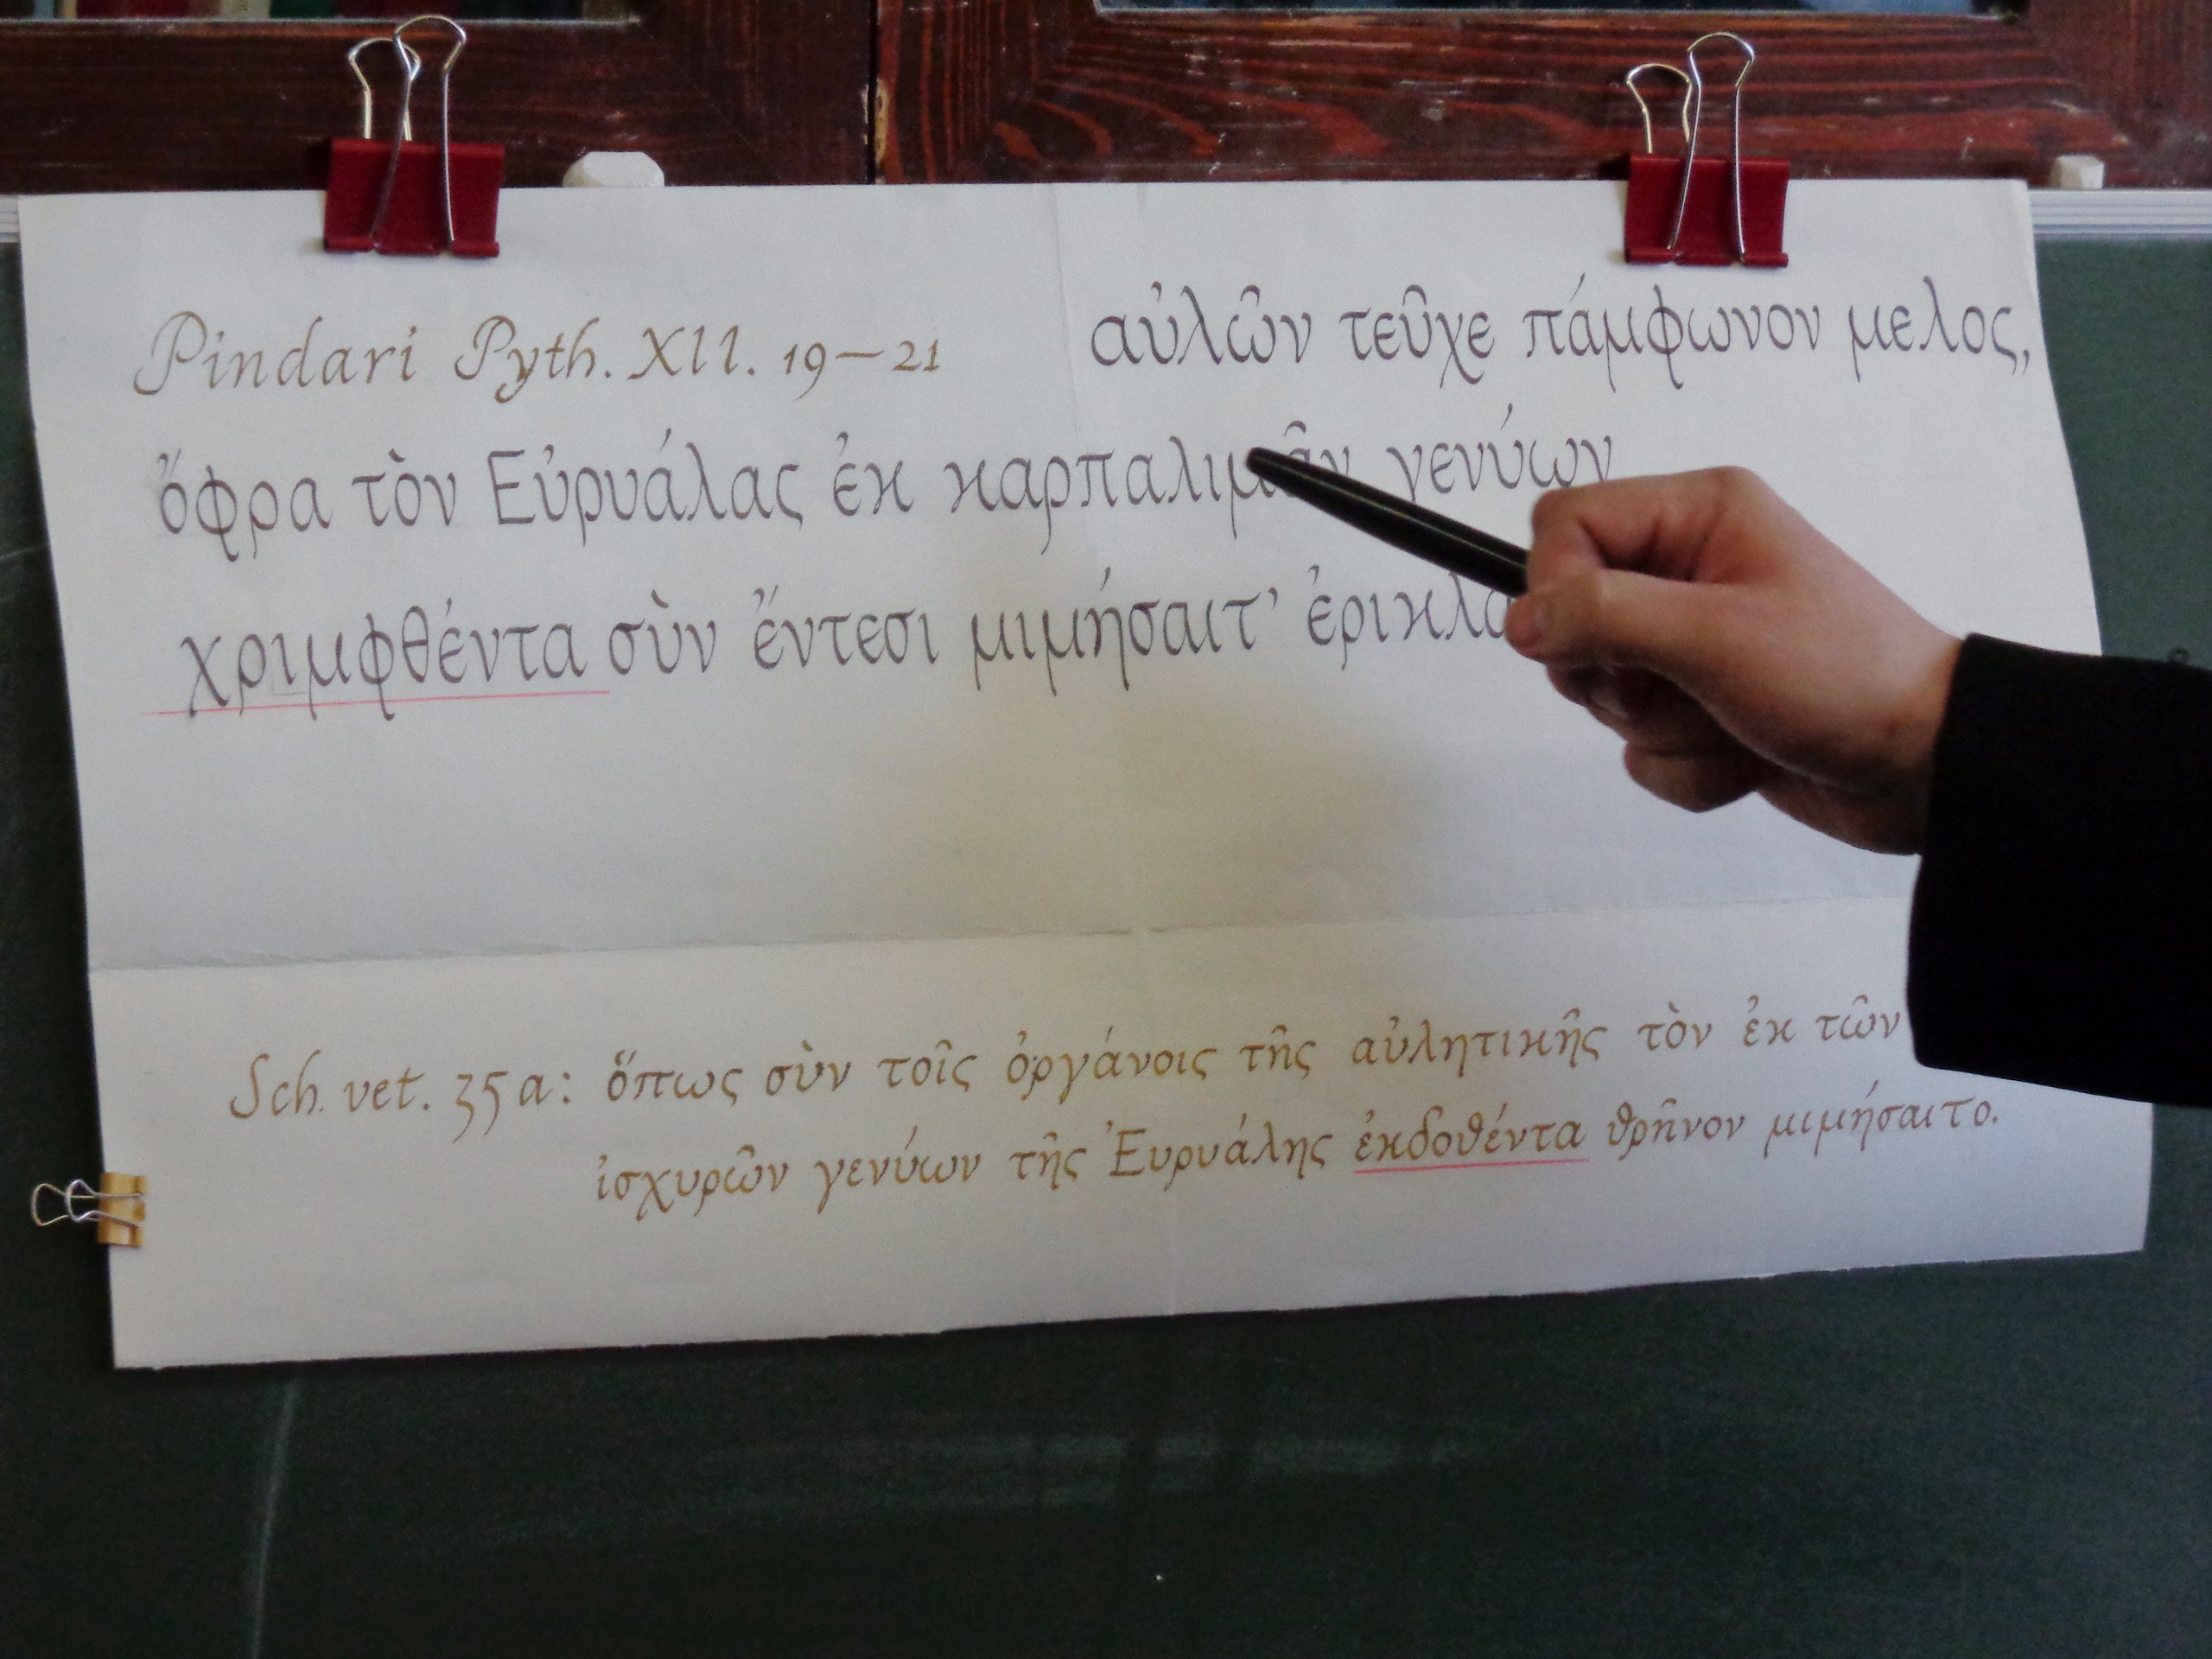 Pindari Pyth. XII. 19–21 αὐλῶν τεῦχε πάμφωνον μελος,
ὄφρα τὸν Εὐρυάλας ἐκ καρπαλιμᾶν γενύων
χριμφθέντα σὺν ἔντεσι μιμήσαιτ’
Sch. vet. 35a: ὅπως σὺν τοῖς ὀργάνοις τῆς αὐλητικῆς τὸν ἐκ τῶν
ἰσχυρῶν γενύων τῆς Ἐυρυάλης ἐκδοθέντα θρῆνον μιμήσαιτο.